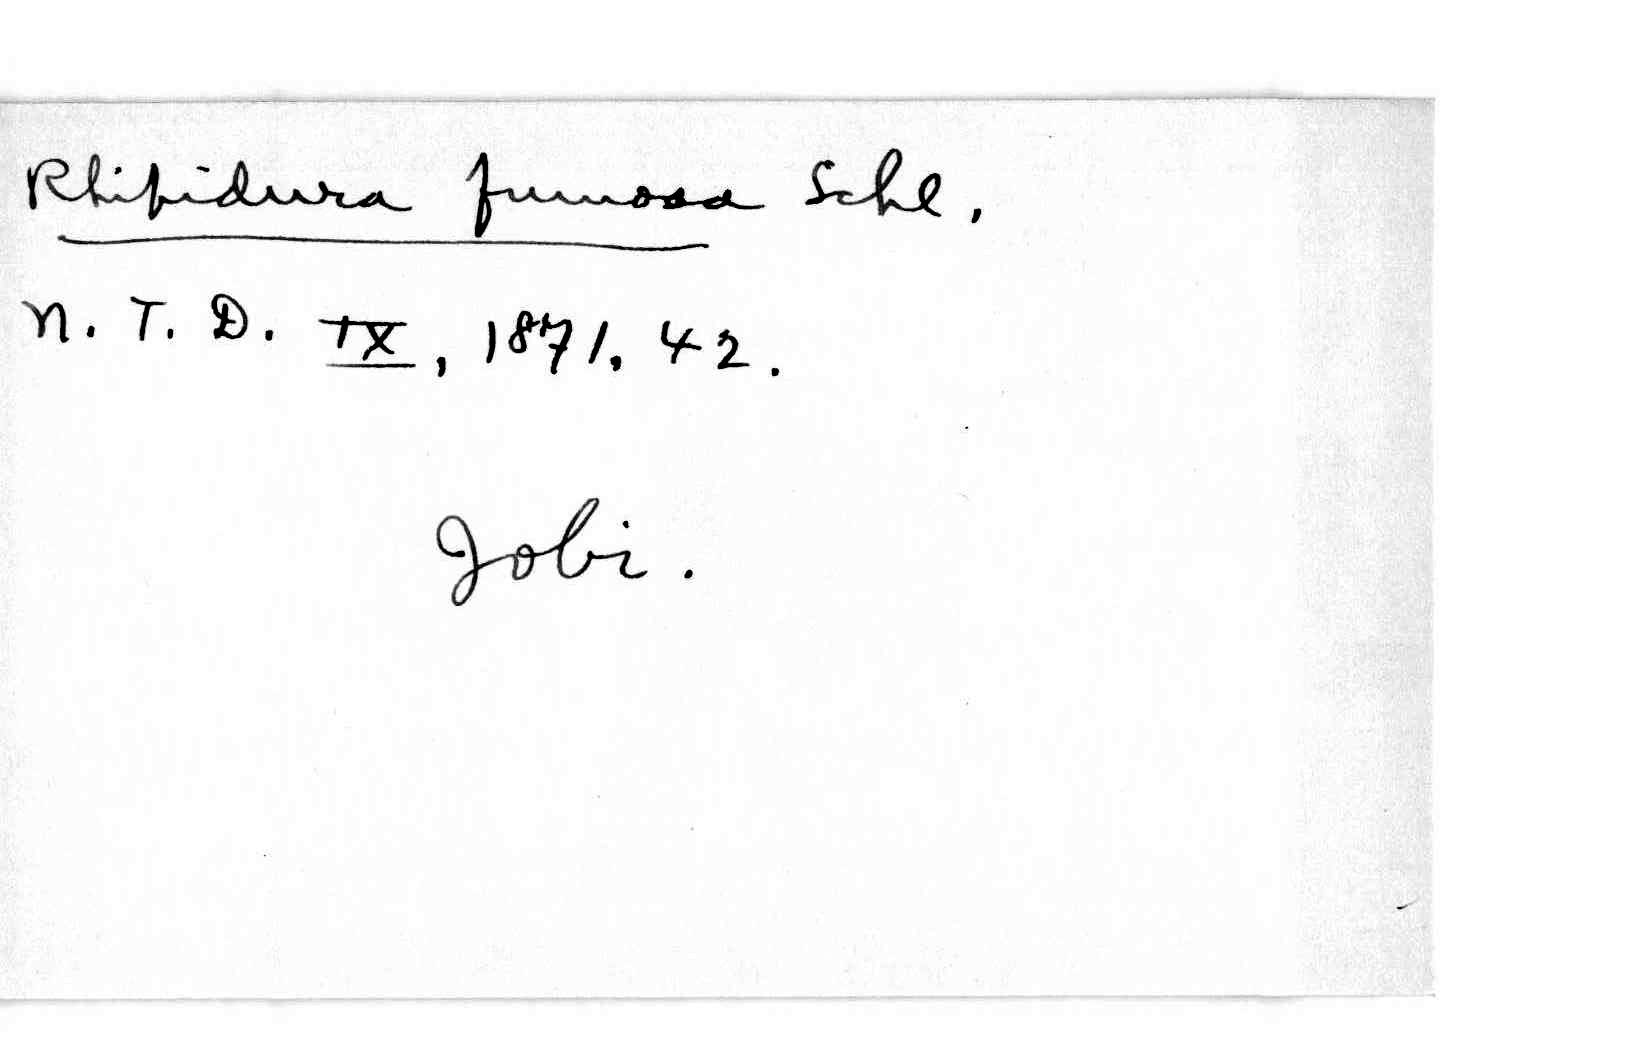 Rhipidura fumosa Schl.
N. T. D. IX, 1871. 42.
Jobi.